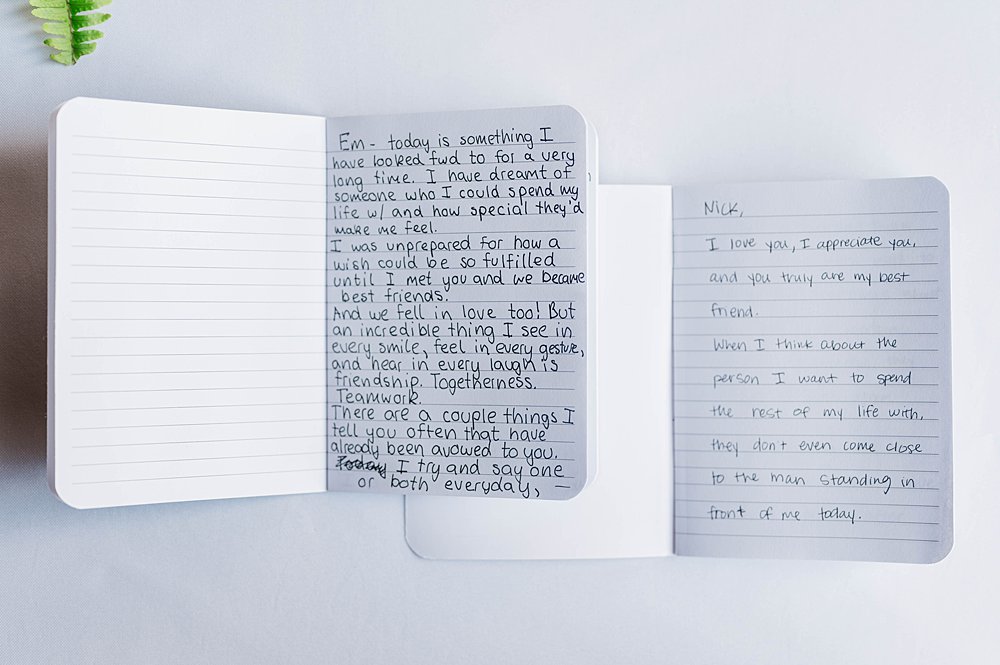 Em - today is something I
have looked fwd to for a very
long time. I have dreamt of
someone who I could spend my
life w/ and how special they'd
make me feel.
I was unprepared for how a
wish could be so fulfilled
until I met you and we became
best friends.
And we fell in love too! But
an incredible thing I see in
every smile, feel in every gesture,
and hear in every laugh is
friendship. Togetherness.
Teamwork.
There are a couple things I
tell you often that have
already been avowed to you.
I try and say one
or both everyday, —
Nick,
I love you, I appreciate you,
and you truly are my best
friend.
When I think about the
person I want to spend
the rest of my life with,
they don't even come close
to the man standing in
front of me today.